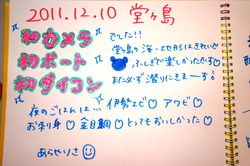 2011.12.10 堂ヶ島
初カメラ
初ボート
初ダイコン
でした!!
堂ヶ島の海・地形はきれいで
ふしぎで楽しかったです
また必ず潜りにきまーす!
夜のごはんは… 伊勢エビ♡ アワビ♡
お刺身♡ 金目鯛♡ とってもおいしかった♡
あらやりさ